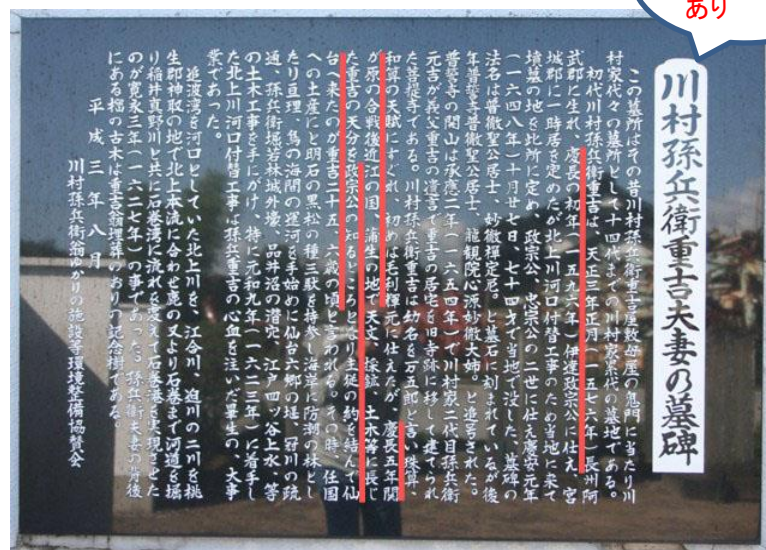 あり
川村孫兵衛重吉夫妻の墓碑
この墓所はその昔川村孫兵衛重吉屋敷母屋の鬼門に当たり川
村家代々の墓所として十四代までの川村家累代の墓地である。
初代川村孫兵衛重吉は、天正三年正月(一五七六年)長州阿
武郡に生れ、慶長の初年(一五九六年)伊達政宗公に仕え、宮
城郡に一時居を定めたが北上川河口付替工事のため当地に来て
墳墓の地を此所に定め、政宗公、忠宗公の二世に仕え慶安元年
(一六四八年)十月廿七日、七十四才で当地で没した。墓碑の
法名は普徹聖公居士、妙徹禅定尼。と墓石に刻まれているが後
年普誓寺普徹聖公居士、龍観院心源妙徹大姉。と追号された。
普誓寺の開山は承應二年(一六五四年)で川村家二代目孫兵衛
元吉が義父重吉の遺言で重吉の居宅を旧寺跡に移して建てられ
た菩提寺である。川村孫兵衛重吉は幼名を万五郎と言い珠算、
和算の天賦にすぐれ、初めは毛利輝元に仕えたが、慶長五年関
が原の合戦後近江の国、蒲生の地で天文、採鉱、土木等に長じ
た重吉の天分を政宗公の知るところとなり主従の約を結んで仙
台へ来たのが重吉二十五、六歳の頃と言われる。その時、任国
への土産にと明石の黒松の種三駄を持参し海岸に防潮の林とし
たり亘理、鳥の海間の運河を手始めに仙台六郷の堰、冠川の疏
通、孫兵衛堀若林城外壕、品井沼の潜穴、江戸四ツ谷上水、等
の土木工事を手にがけ、特に元和九年(一六二三年)に着手し
た北上川河口付替工事は孫兵衛重吉の心血を注いだ畢生の、大事
業であった。
追波湾を河口としていた北上川を、江合川、迫川の二川を桃
生郡神取の地で北上本流に合わせ鹿の又より石巻まで河道を掘
り稲井真野川と共に石巻湾に流れを変えて石巻港を実現させた
のが寛永三年(一六二七年)の事であった。孫兵衛夫妻の背後
にある樒の古木は重吉翁埋葬のおりの記念樹である。
平成三年八月
川村孫兵衛翁ゆかりの施設等環境整備協賛会